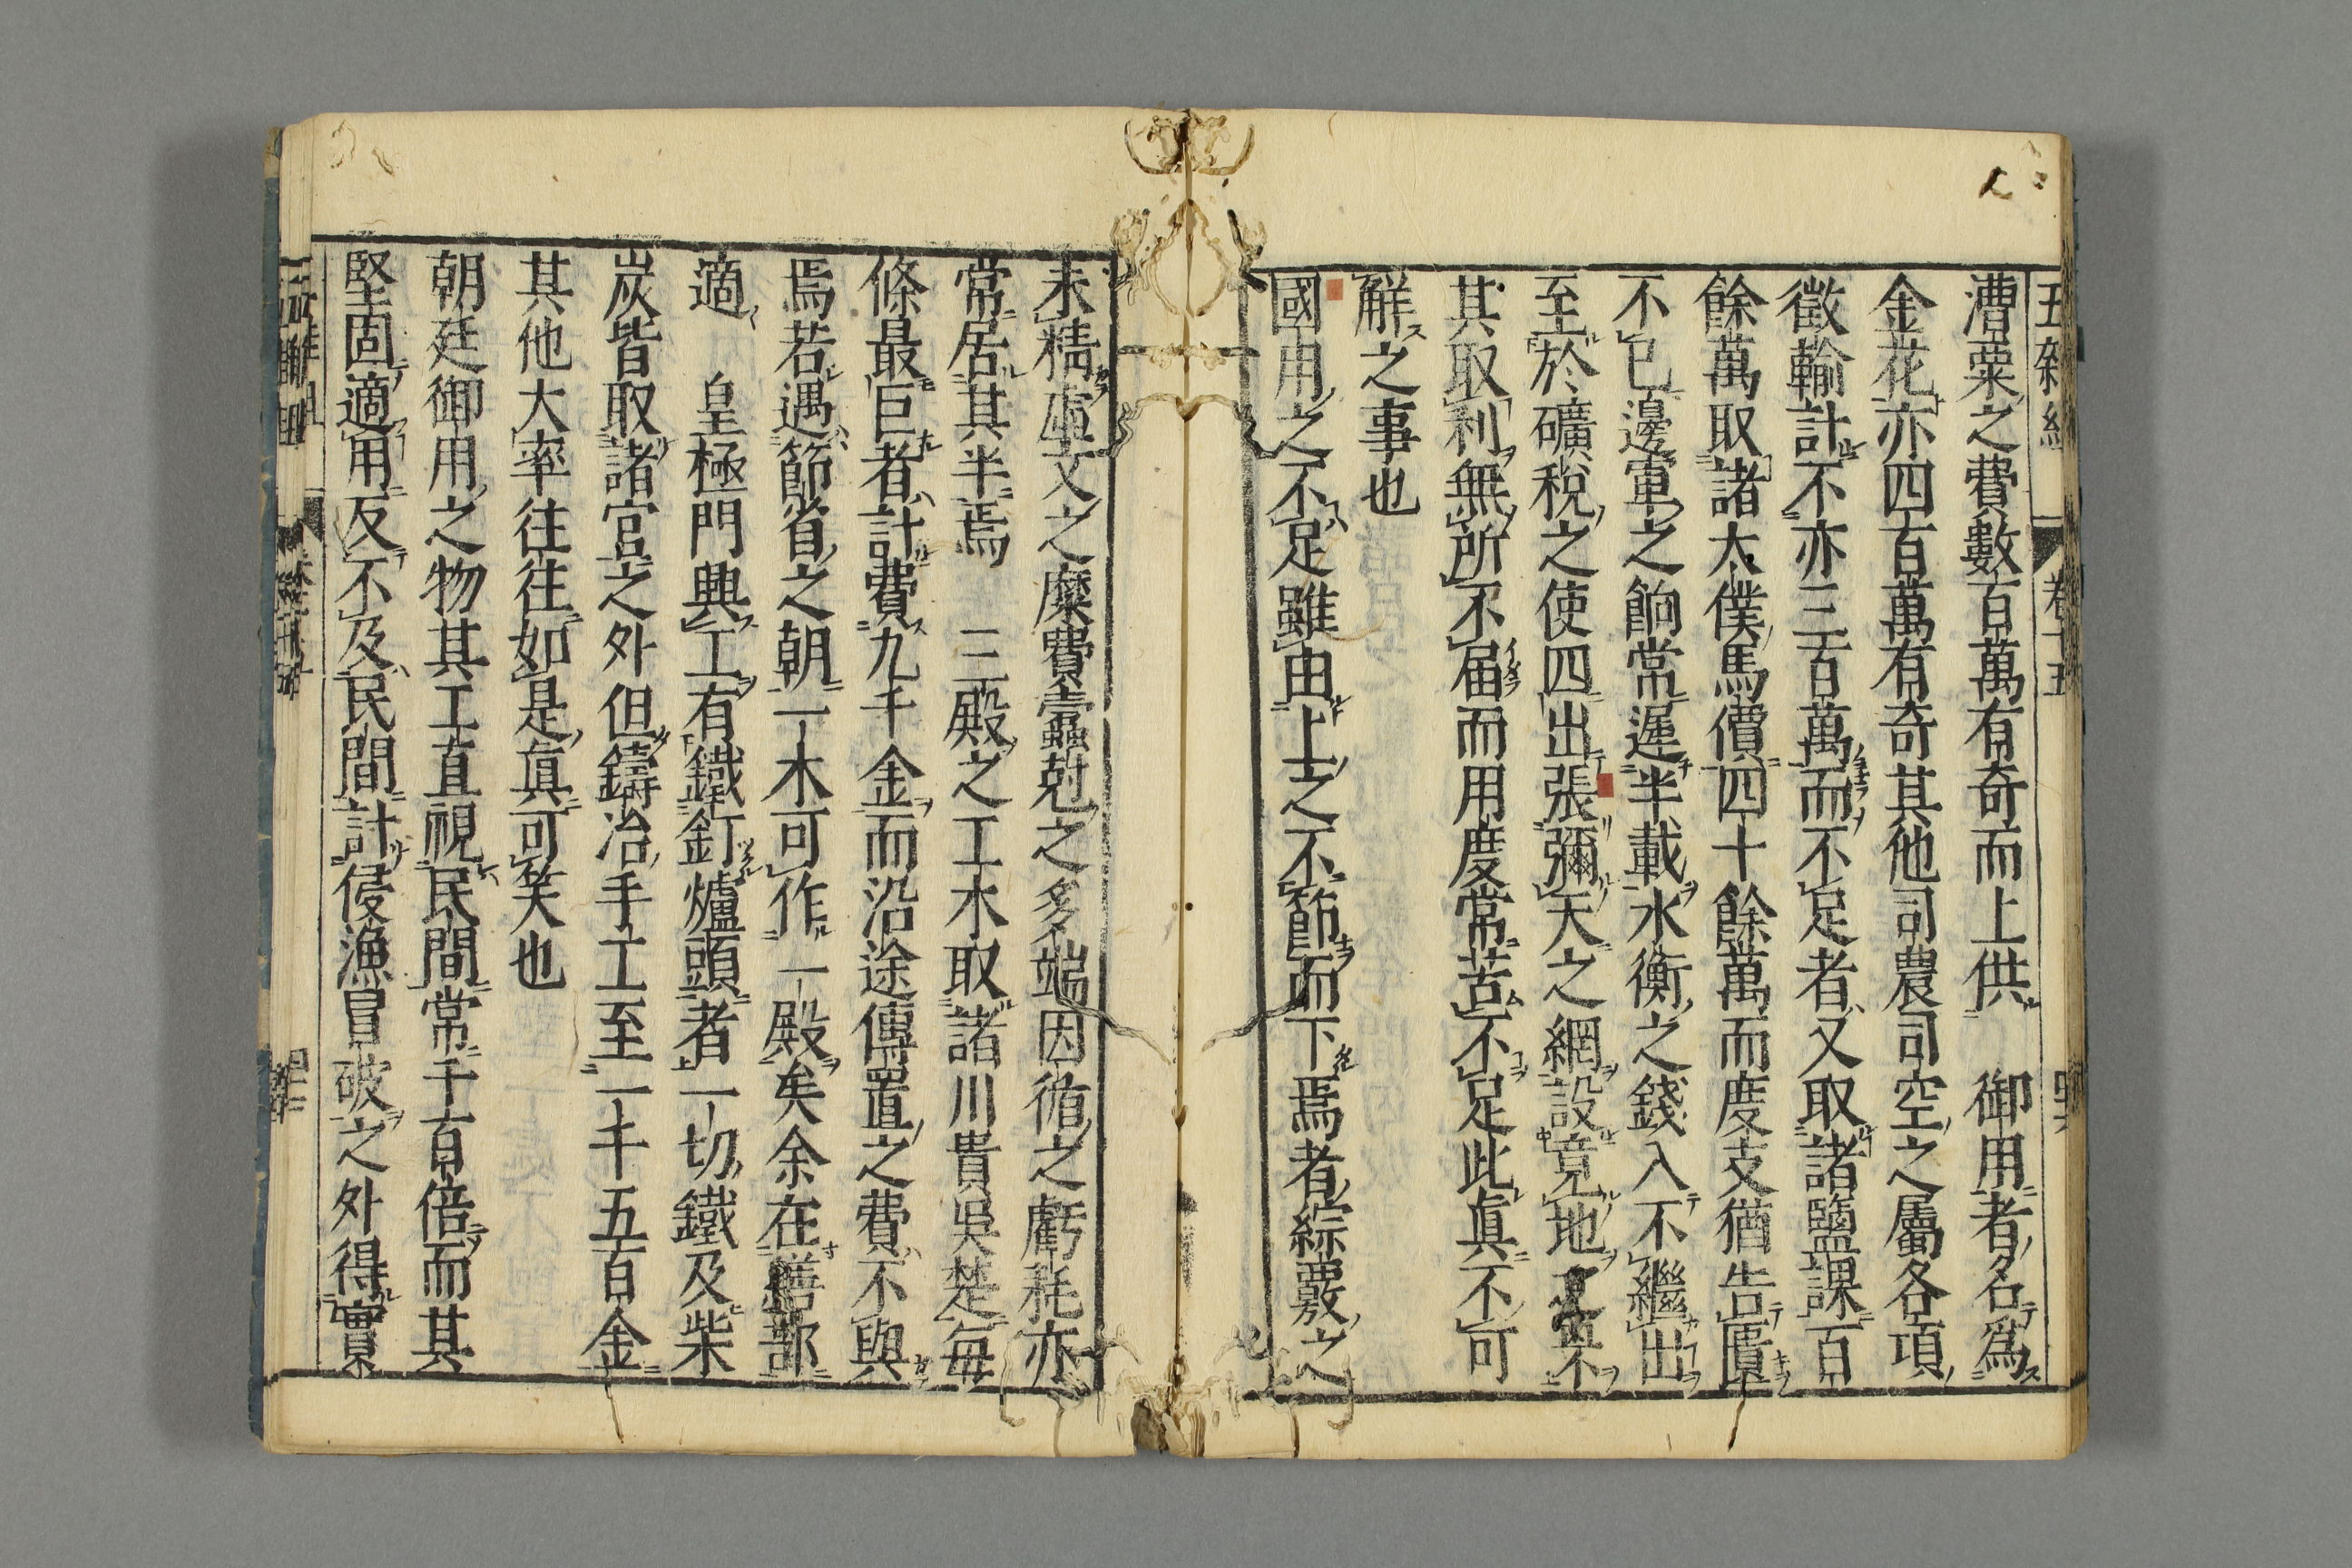 五雜組 卷十五
漕粟之費數百萬有奇而上供 御用者名爲
金花亦四百萬有奇其他司農司空之屬各項
徵輸計不亦三百萬而不足者又取諸鹽課百
餘萬取諸大僕馬價四十餘萬而度支猶告匱
不已邊軍之餉常遲半載水衡之錢入不繼出
至於礦稅之使四出張彌天之網設竟地
其取利無所不届而用度常苦不足此眞不可
觧之事也
國用之不足雖由上之不節而下焉者綜覈之
未精虛文之糜費蠧尅之多端因循之虧耗亦
常居其半焉 三殿之工木取諸川貴吳楚每
條最巨者計費九千金而沿途傳置之費不與
焉若遇節省之朝一木可作一殿矣余在繕部
適 皇極門興工有鐵釘爐頭者一切鐵及柴
炭皆取諸官之外但鑄冶手工至一千五百金
其他大率往往如是眞可笑也
朝廷御用之物其工直視民間常千百倍而其
堅固適用反不及民間計侵漁冒破之外得實